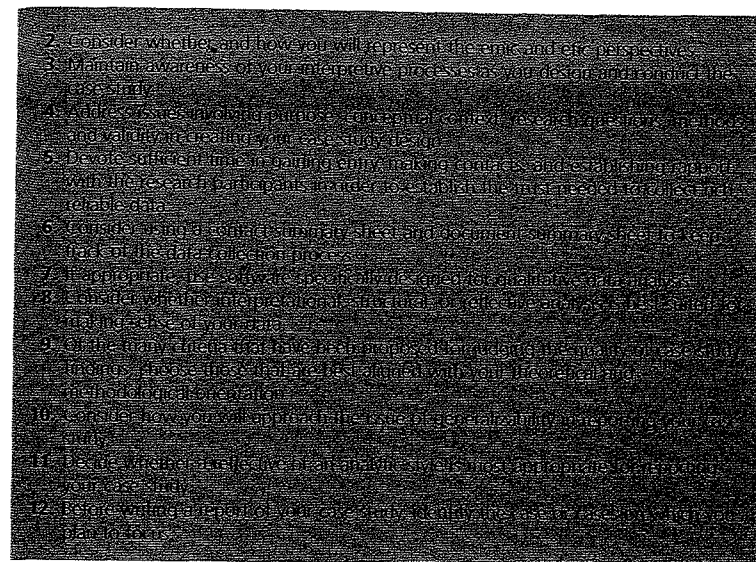 2. Consider whether and how you will represent the emic and etic perspectives.
3. Maintain awareness of your interpretive processes as you design and conduct the
case study.
4. Address issues involving purpose, conceptual context, research questions, methods,
and validity in creating your case study design.
5. Devote sufficient time in gaining entry, making contacts, and establishing rapport
with the research participants in order to establish the trust needed to collect rich,
reliable data.
6. Consider using a contact summary sheet and document summary sheet to keep
track of the data-collection process.
7. If appropriate, use software specifically designed for qualitative data analysis.
8. Consider whether interpretational, structural, or reflective analysis is best suited for
making sense of your data.
9. Of the many criteria that have been proposed for judging the quality of case study
findings, choose those that are best aligned with your theoretical and
methodological orientation.
10. Consider how you will approach the issue of generalizability in reporting your case
study.
11. Decide whether a reflective or an analytic style is most appropriate for reporting
your case study.
12. Before writing a report of your case study, identify the on which you
plan to focus.